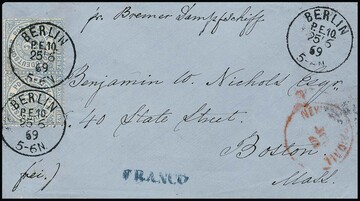 pr. Bremer Dampfschiff
BERLIN
P.E.10.
25 5
69
5-6N.
BERLIN
P.E.10.
25 5
69
5-6N.
BERLIN
P.E.10.
25 5
69
5-6N.
Benjamin W. Nichols Esqr.
40 State Street.
Boston
Mass.
frei.)
FRANCO
NEW